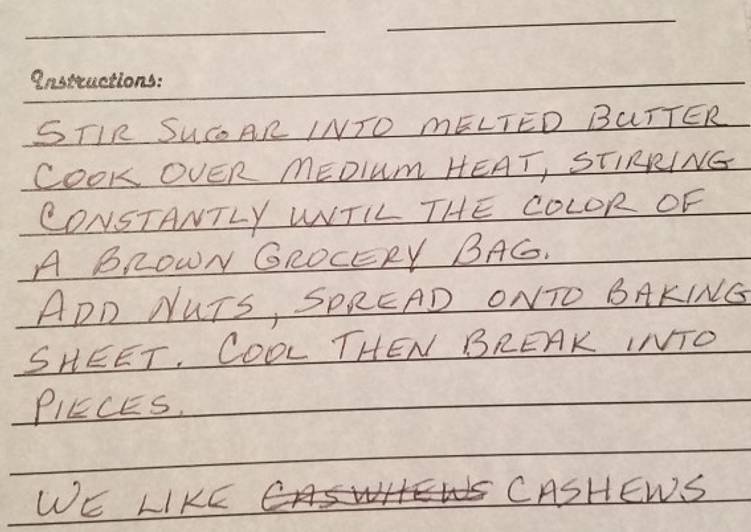 Instructions:
STIR SUGAR INTO MELTED BUTTER
COOK OVER MEDIUM HEAT, STIRRING
CONSTANTLY UNTIL THE COLOR OF
A BROWN GROCERY BAG.
ADD NUTS, SPREAD ONTO BAKING
SHEET. COOL THEN BREAK INTO
PIECES.
WE LIKE CASWHEWS CASHEWS